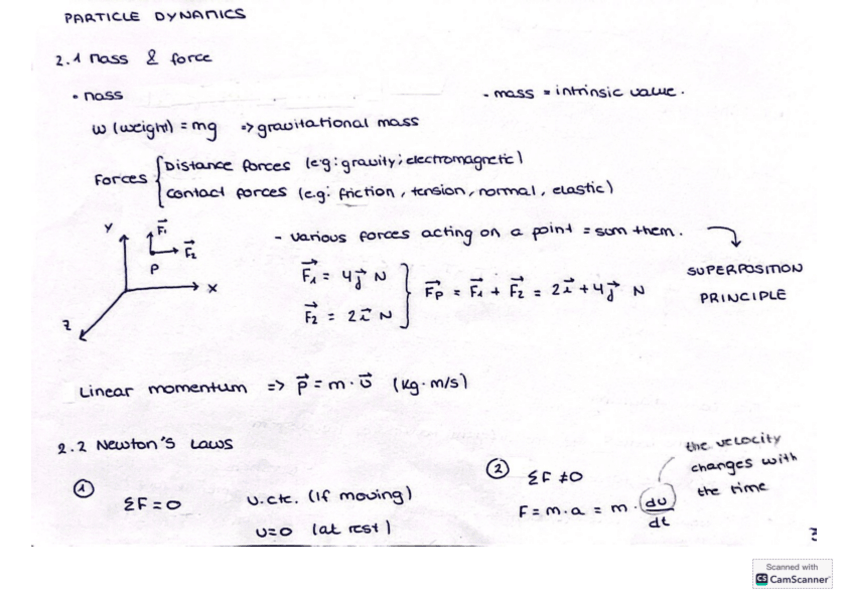 PARTICLE DYNAMICS
2.1 Mass & force
• Mass - mass = intrinsic value.
W (weight) = mg => gravitational mass
Forces { Distance forces (e.g: gravity; electromagnetic)
Contact forces (e.g: friction, tension, normal, elastic)
- Various forces acting on a point = sum them.
SUPERPOSITION
PRINCIPLE
Y F⃗1 F⃗2 P X Z
F⃗1 = 4j⃗ N
F⃗2 = 2i⃗ N
F⃗p = F⃗1 + F⃗2 = 2i⃗ + 4j⃗ N
Linear momentum => p⃗ = m · v⃗ (kg · m/s)
2.2 Newton's Laws
① ΣF = 0 v.cte. (If moving)
v=0 (at rest)
② ΣF ≠ 0
F = m.a = m · dv/dt
the velocity
changes with
the time
Scanned with
CS CamScanner